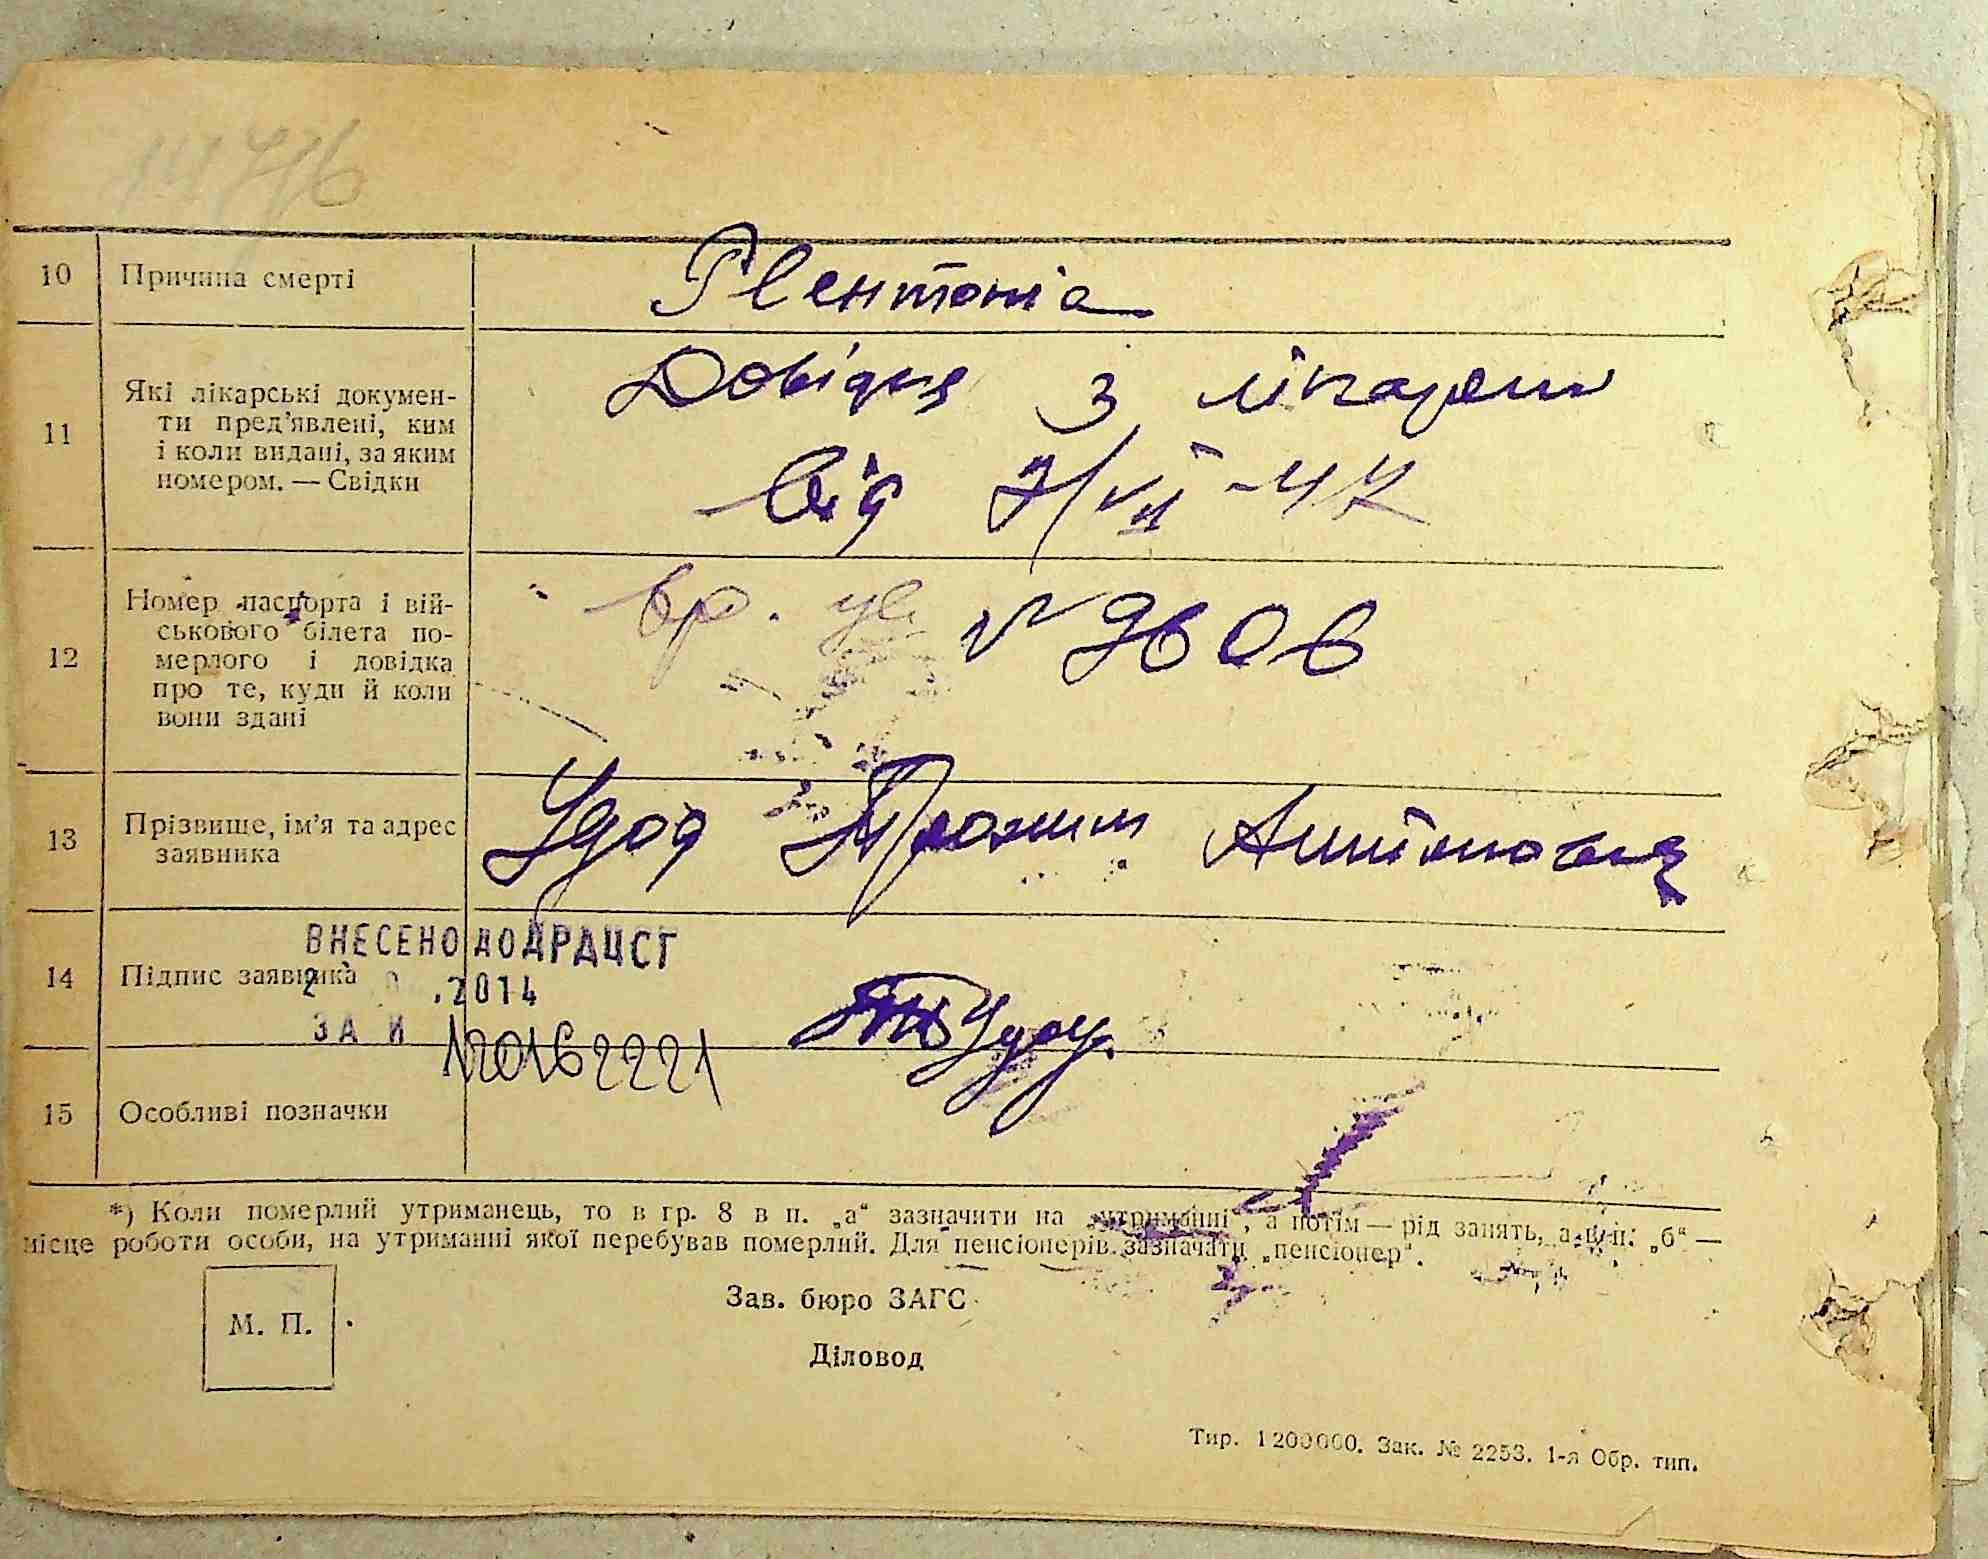 10 Причина смерті
11 Які лікарські докумен-
ти пред'явлені, ким
і коли видані, за яким
номером. — Свідки
Довідка з лікарени
від 7/VII-47
12 Номер паспорта і вій-
ськового білета по-
мерлого і довідка
про те, куди й коли
вони здані
вр. ус № 9606
13 Прізвище, ім'я та адрес
заявника
Удод
14 Підпис заявника
ВНЕСЕНО ДО ДРАЦСГ
.2014
ЗА
15 Особливі позначки
*) Коли померлий утриманець, то в гр. 8 в п. „а“ зазначити на „утриманні“, а потім — рід занять, а в п. „б“ —
місце роботи особи, на утриманні якої перебував померлий. Для пенсіонерів зазначати „пенсіонер“.
М. П.
Зав. бюро ЗАГС
Діловод
Тир. 1200000. Зак. № 2253. 1-я Обр. тип.